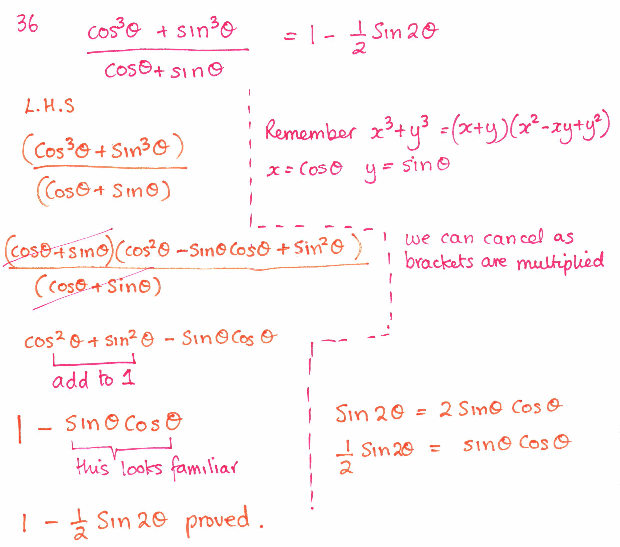 36 cos³θ + sin³θ / cosθ + sinθ = 1 - 1/2 Sin 2θ
L.H.S
(cos³θ + sin³θ) / (cosθ + sinθ)
Remember x³+y³ = (x+y)(x²-xy+y²)
x = cosθ y = sinθ
(cosθ + sinθ)(cos²θ - sinθ cosθ + sin²θ) / (cosθ + sinθ)
we can cancel as
brackets are multiplied
cos²θ + sin²θ - sinθ cosθ
add to 1
1 - sinθ cosθ
this looks familiar
Sin 2θ = 2 sinθ cosθ
1/2 Sin 2θ = sinθ cosθ
1 - 1/2 Sin 2θ proved.